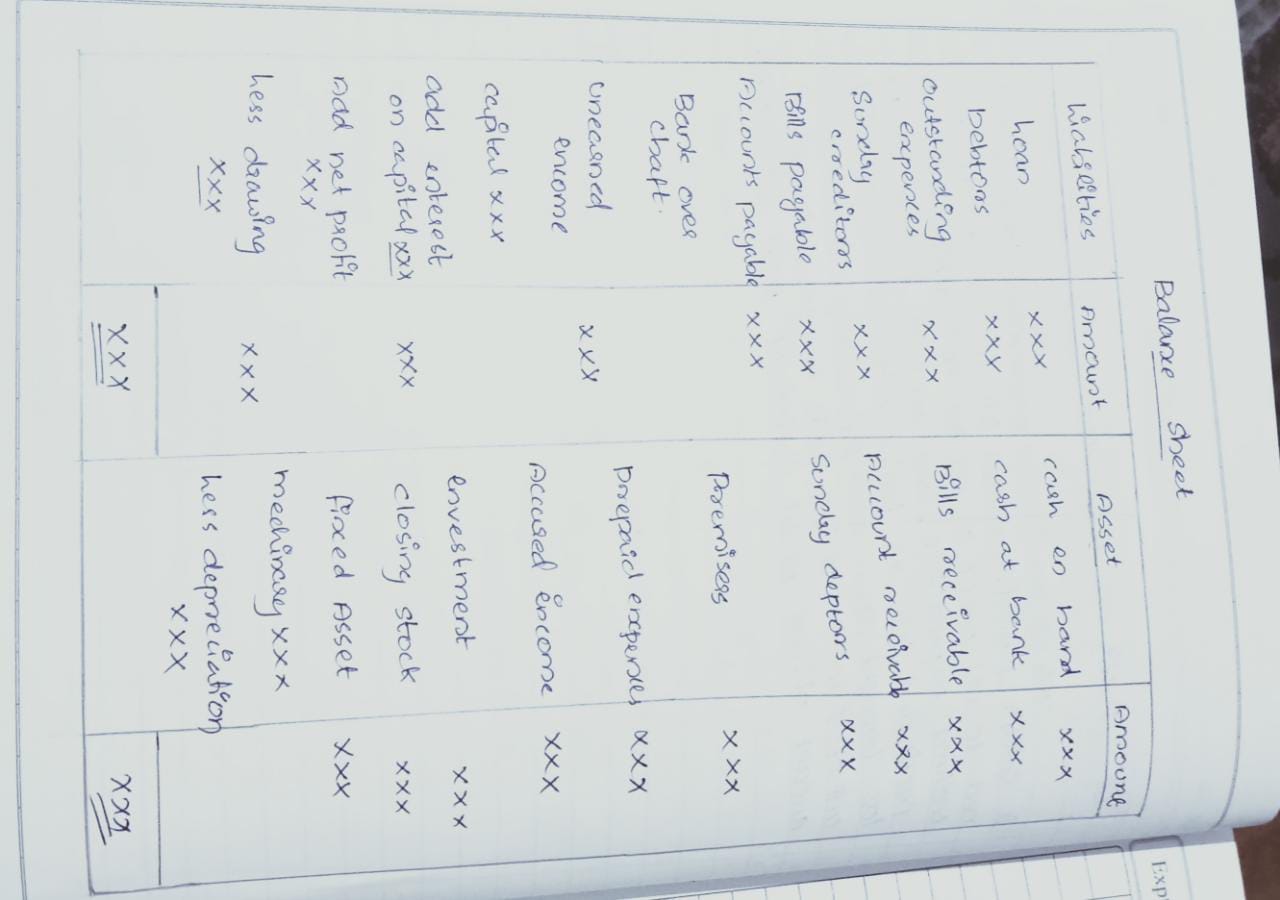 Balance Sheet
Liabilities Amount Asset Amount
Loan xxx cash en hand xxx
Debtors xxx cash at bank xxx
outstanding
expences xxx Bills receivable xxx
Sunday
creeditors xxx Account receivable xxx
Bills payable xxx Sunday deptors xxx
Accounts payable xxx
Bank over
chaft. Premises xxx
unearned
encome xxx Prepaid expenses xxx
capital xxx Accured encome xxx
add enterest
on capital xxx xxx envestment xxx
closing stock xxx
Add net profit
xxx fixed Asset xxx
Less drawing
xxx xxx mechinarey xxx
Less depreciation
xxx
xxx xxx
Exp